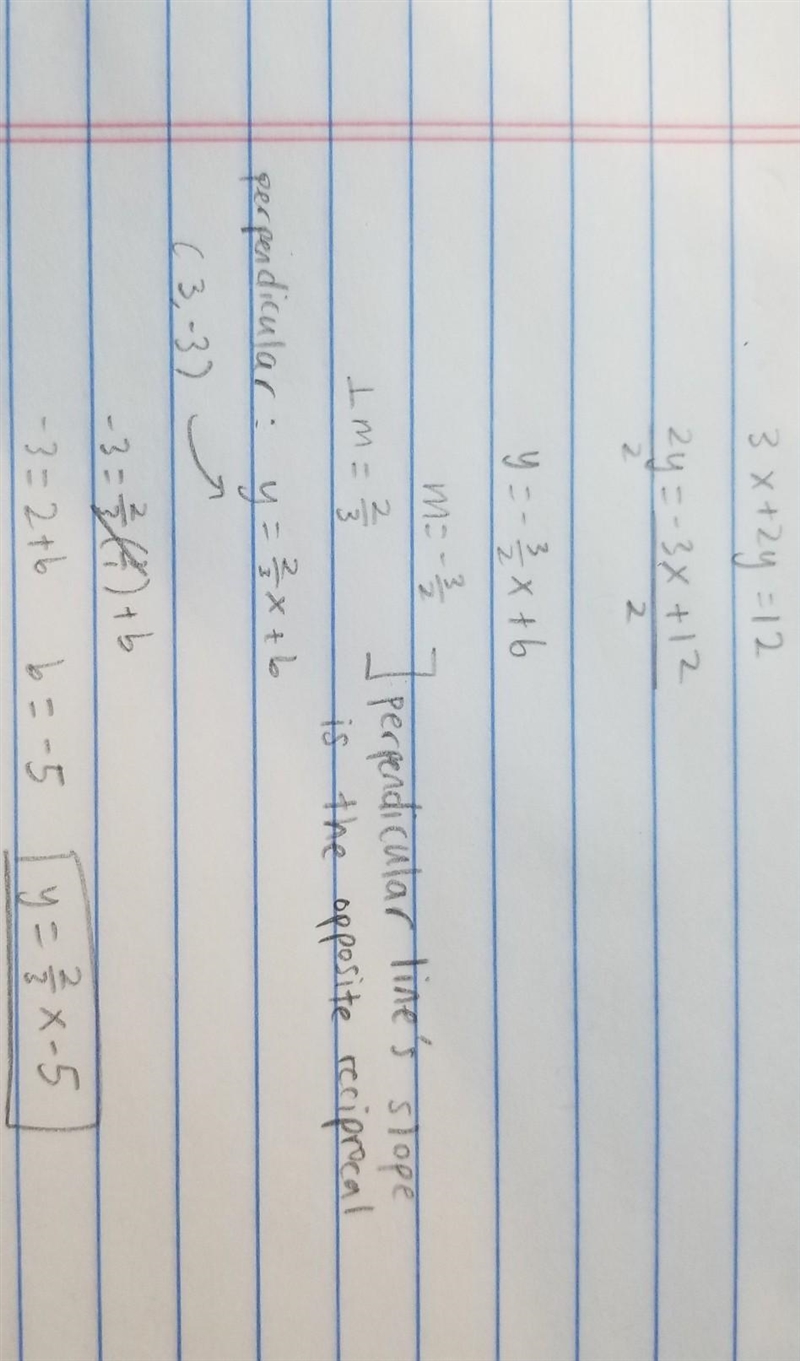 3x+2y=12
2y=-3x+12
2 2
y=-3/2x+6
m=-3/2
⊥m=2/3
] perpendicular line's slope
is the opposite reciprocal
perpendicular: y=2/3x+b
(3,-3)
-3=2/3( /1)+b
-3=2+b b=-5 y=2/3x-5